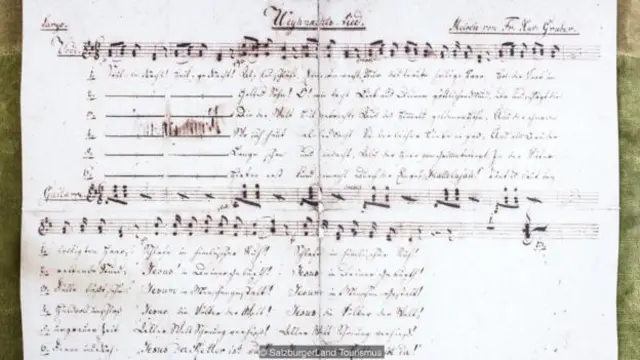 Largo. Weyhnachts-Lied. Melodie von Fr. Xav. Gruber.
1. Stille Nacht! Heilige Nacht! Alles schläft. wacht Nur das traute heilige Paar.
2. Gottes Sohn! O! wie lacht Lieb' aus Deinem göttlichen Mund, Da schlägt die
3. Die der Welt Heil gebracht, Aus des Himmels goldenen Höhn, Aus der Gnaden
4. Wo sich heut alle Macht Väterlicher Liebe ergoß, Und als Bruder
5. Lange schon uns bedacht, Als der Herr vom Grimme befreyt, In der Väter
6. Hirten erst kund gemacht Durch der Engel Halleluja! Tönt es laut bey
1. lockigten Haar; Schlafe in himmlischer Ruh! Schlafe in himmlischer Ruh!
2. rettende Stund. Jesus in Deiner Geburt! Jesus in Deiner Geburt!
3. Fülle läßt seh'n Jesum in Menschengestalt! Jesum in Menschengestalt!
4. Huldvoll umschloß Jesus die Völker der Welt! Jesus die Völker der Welt!
5. urgrauer Zeit Aller Welt Schonung verhieß! Aller Welt Schonung verhieß!
6. Ferne und nah: Jesus der Retter ist da!
© SalzburgerLand Tourismus